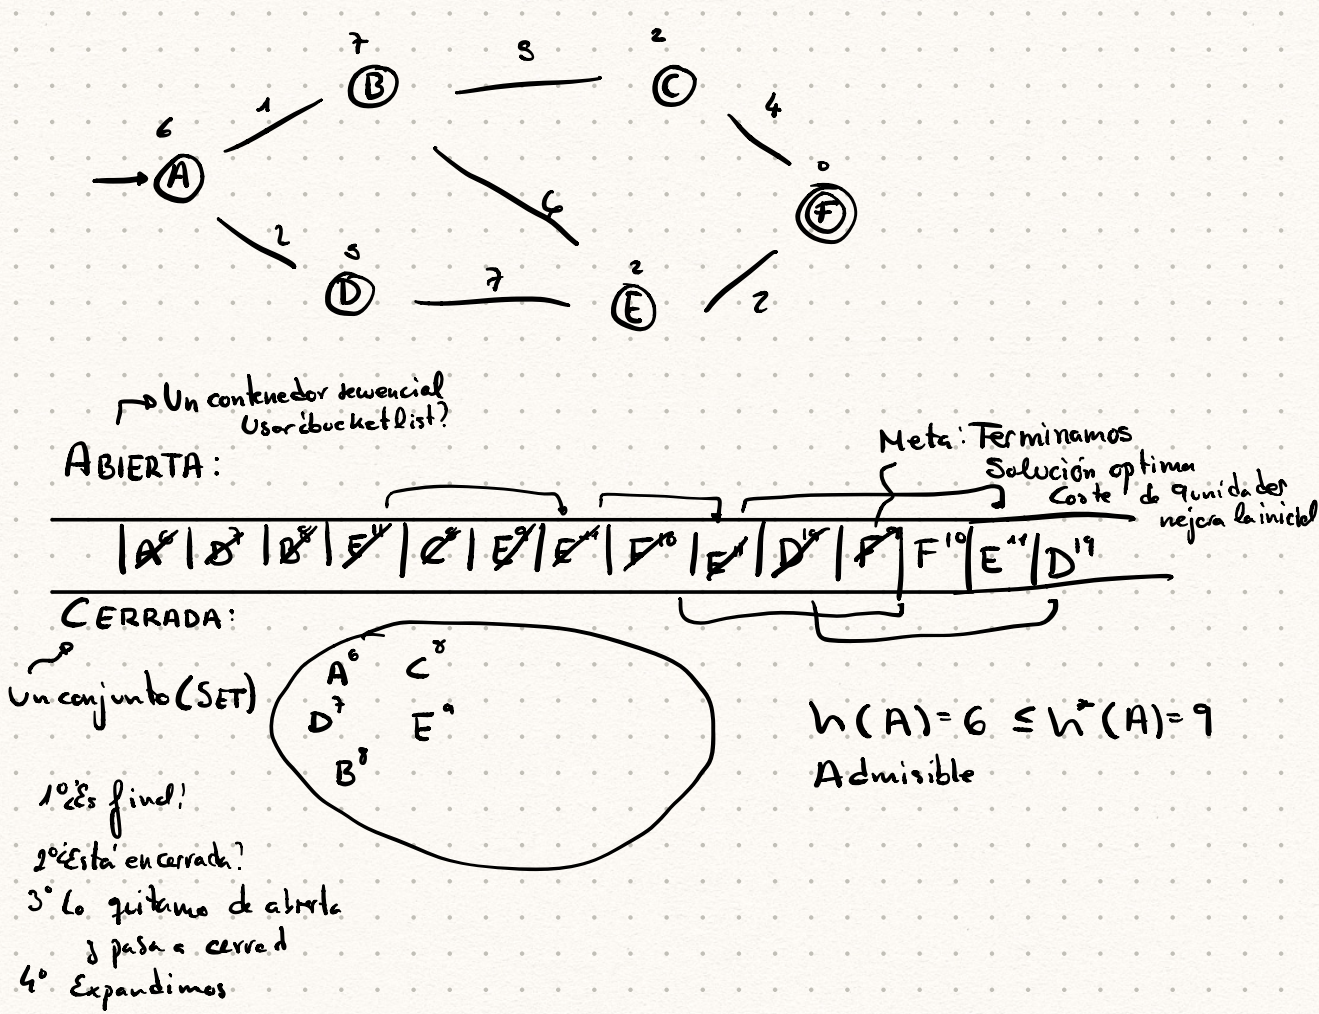 7
5
2
B
C
1
4
6
0
A
F
6
2
5
2
7
D
E
2
Un contenedor secuencial
Usar ¿bucket list?
ABIERTA:
Meta: Terminamos
Solución optima
Coste de 9 unidades
mejora la inicial
A⁶ D⁷ B⁸ E¹¹ C⁸ E⁹ E¹¹ F¹⁰ E¹¹ D¹⁹ F⁹ F¹⁰ E¹¹ D¹⁹
CERRADA:
Un conjunto (SET)
A⁶ C⁸
D⁷ E⁹
B⁸
h(A)=6 ≤ h*(A)=9
Admisible
1º ¿Es final?
2º ¿Está en cerrada?
3º Lo quitamo de abierta
y pasa a cerrad
4º Expandimos